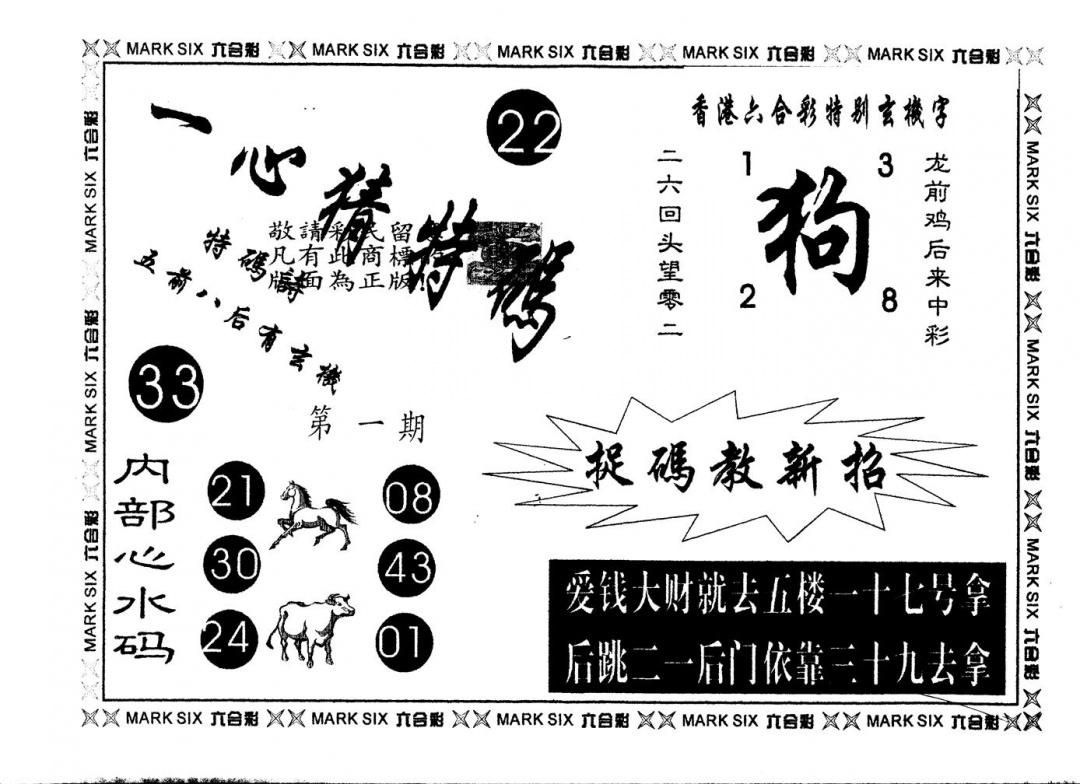 MARK SIX 六合彩 MARK SIX 六合彩 MARK SIX 六合彩 MARK SIX 六合彩 MARK SIX 六合彩
一心猜特碼
22
敬請彩民留
凡有此商標
版面為正版!
特碼詩
五前八后有玄機
33
第一期
香港六合彩特别玄機字
二六回头望零二
1
3
狗
2
8
龙前鸡后来中彩
捉碼教新招
内部心水码
21
08
30
43
24
01
爱钱大财就去五楼一十七号拿
后跳二一后门依靠三十九去拿
MARK SIX 六合彩 MARK SIX 六合彩 MARK SIX 六合彩
MARK SIX 六合彩 MARK SIX 六合彩 MARK SIX 六合彩
MARK SIX 六合彩 MARK SIX 六合彩 MARK SIX 六合彩 MARK SIX 六合彩 MARK SIX 六合彩